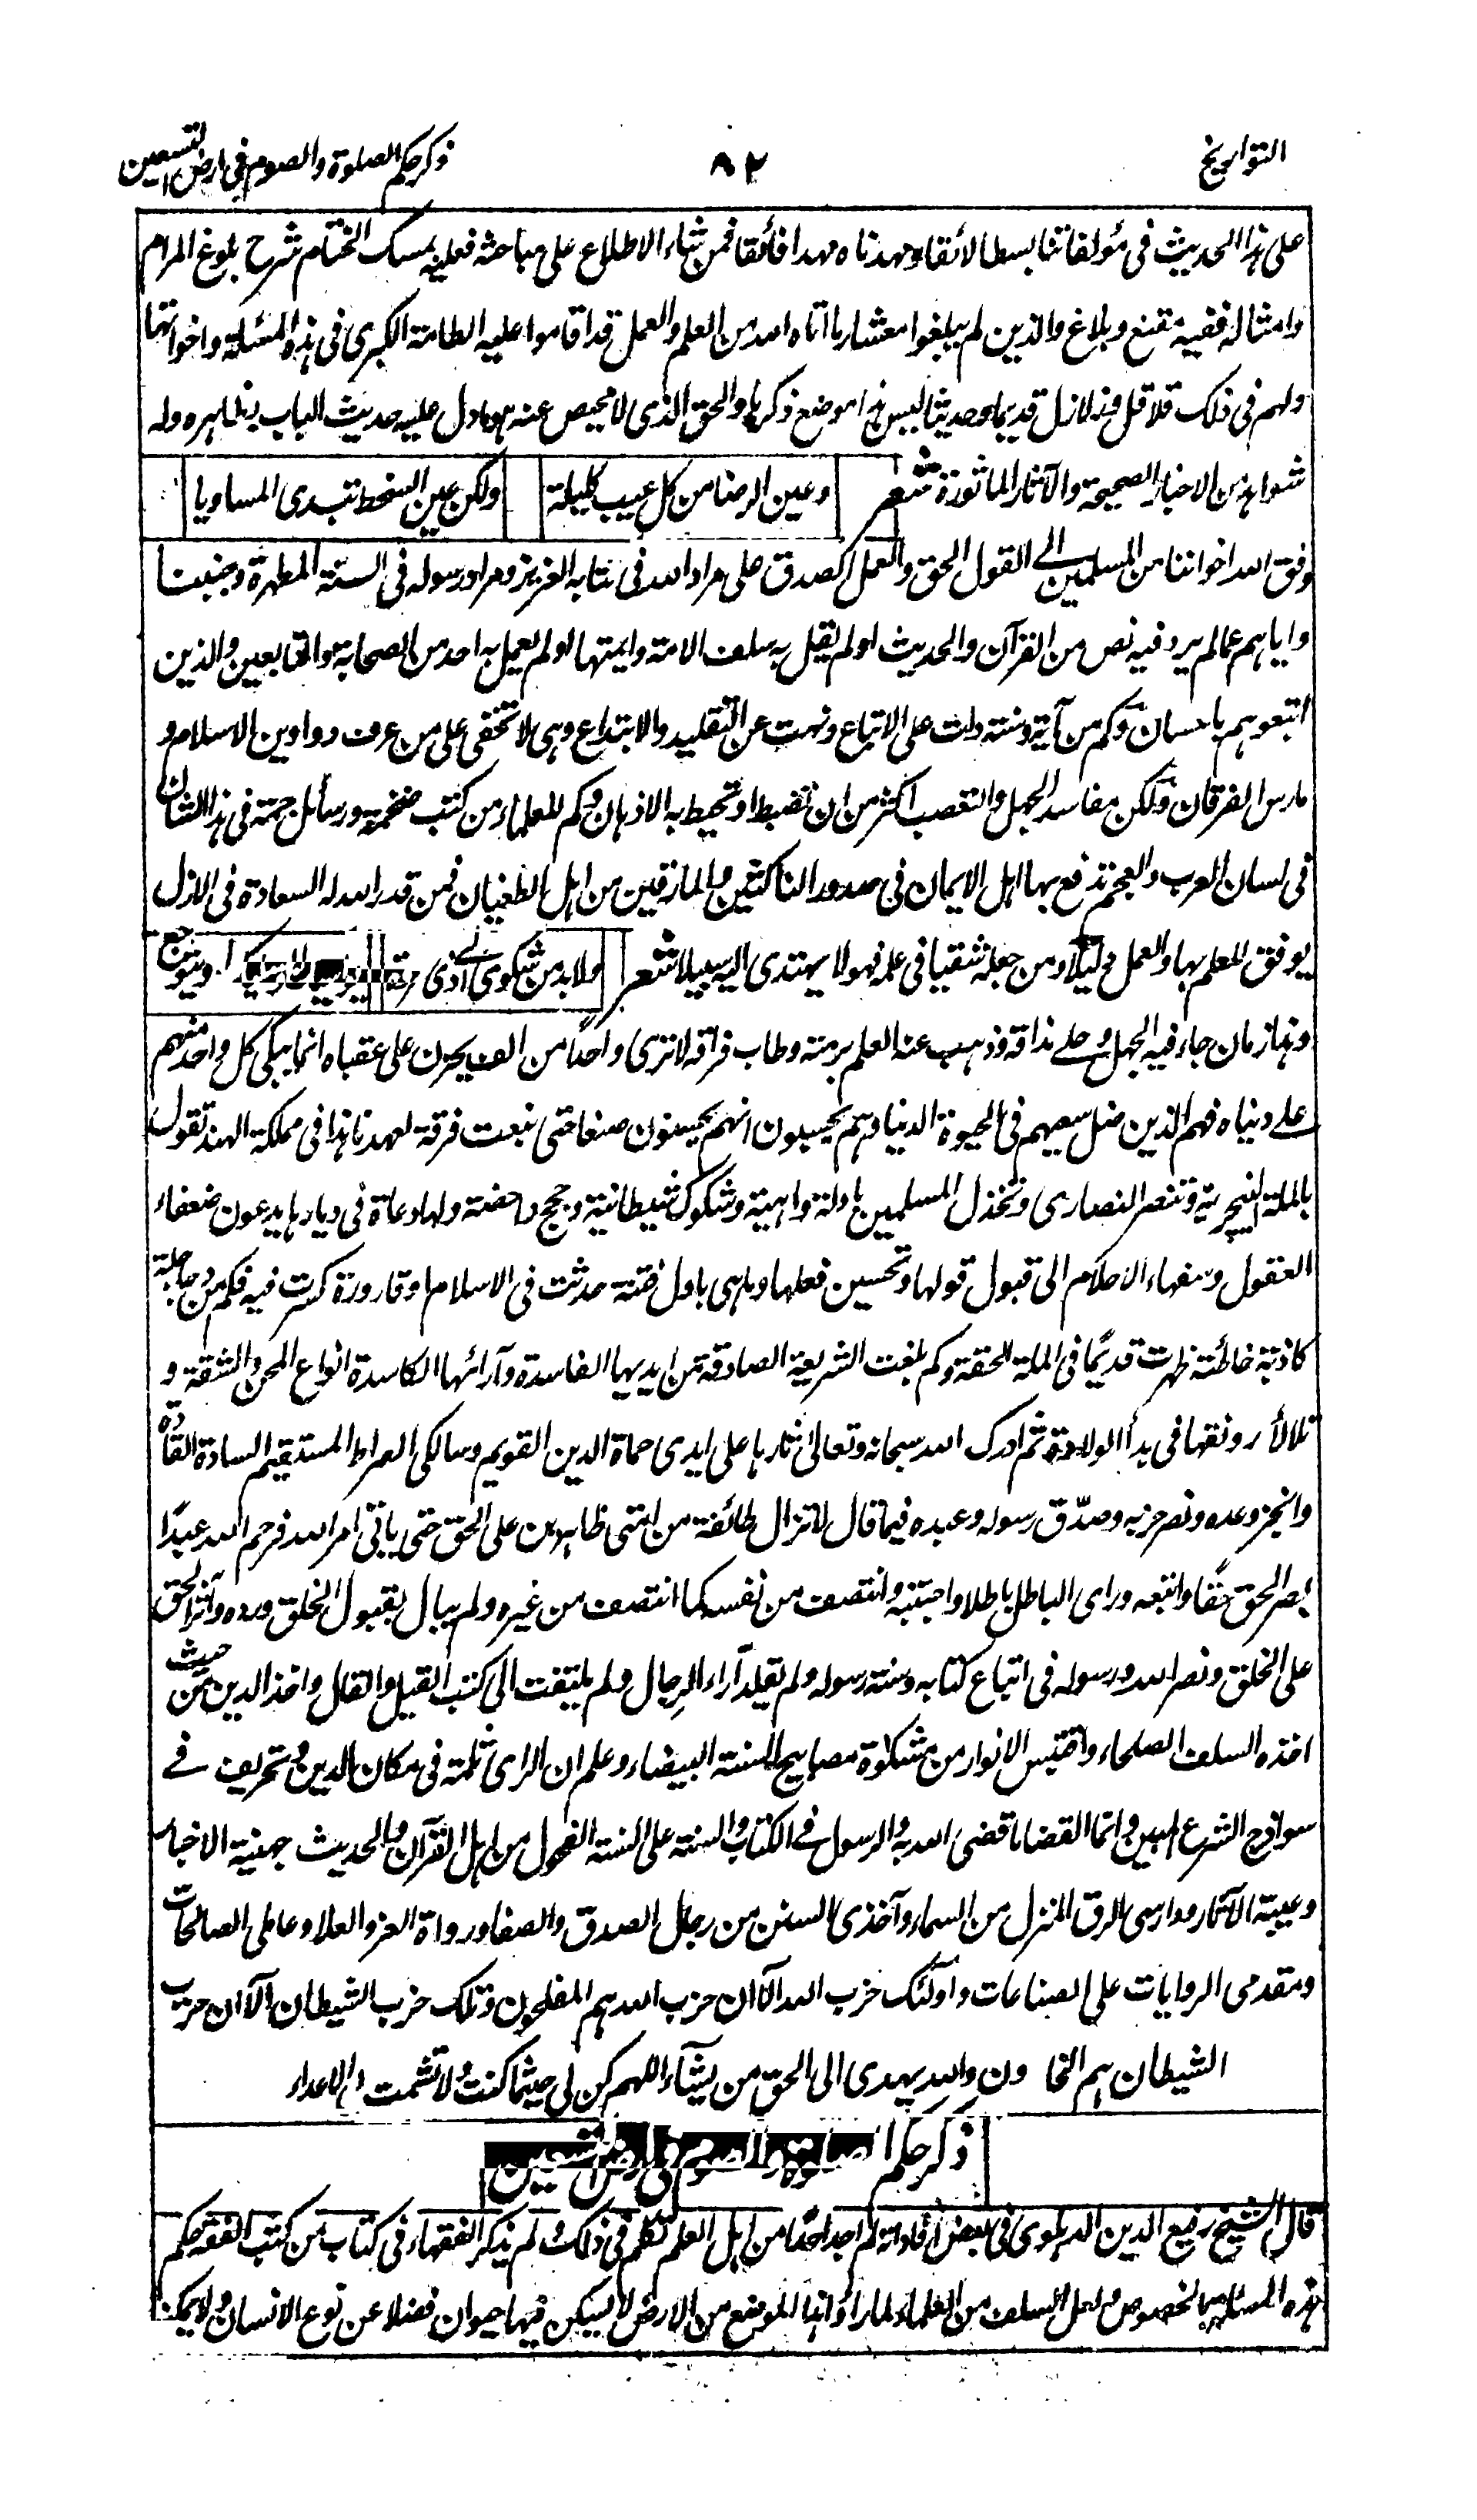 التواريخ
٨٢
ذكر حكم الصلوة والصوم في ارض التسعين
على هذا الحديث فى مؤلفاتنا بسطا لائقا ومهدناه مهدا فائقا فمن شاء الاطلاع على مباحثه فعليه بمسك الختام شرح بلوغ المرام
وامثاله ففيه مقنع وبلاغ والذين لم يبلغوا معشار ما اتاه الله من العلم والعمل قد اقاموا عليه الطامة الكبرى فى هذه المسئلة واخواتها
ولهم فى ذلك قلاقل وزلازل قديما وحديثا ليس هذا موضع ذكرها والحق الذى لا محيص عنه هو ما دل عليه حديث الباب بظاهره وله
شواهد من الاخبار الصحيحة والآثار الماثورة شعر وعين الرضا من كل عيب كليلة ولكن عين السخط تبدى المساويا
وفق الله اخواننا من المسلمين الى القول الحق والعمل الصدق على مراد الله فى كتابه العزيز ومراد رسوله فى السنة المطهرة وجنبنا
واياهم عما لم يرد فيه نص من القرآن والحديث او لم يقل به سلف الامة وايمتها او لم يعمل به احد من الصحابة والتابعين والذين
اتبعوهم باحسان وكم من آية وسنة دلت على الاتباع ونهت عن التقليد والابتداع وهى لا تخفى على من عرف دواوين الاسلام و
مارس الفرقان ولكن مفاسد الجهل والتعصب اكثر من ان تضبط او تحيط به الاذهان وكم للعلماء من كتب ضخمة ورسائل جمة فى هذا الشان
فى لسان العرب والعجم تدفع بها اهل الايمان فى صدور الناكثين والمارقين من اهل الطغيان فمن قدر الله له السعادة فى الازل
يوفق للعلم بها والعمل ومن جعله شقيا فى علمه فهو لا يهتدى اليه سبيلا شعر ولا بد من شكوى الى ذى
وهذا زمان جاء فيه الجهل وحلى مذاقه وذهب عنه العلم برمته وطاب فراقه لا ترى واحدًا من الف يحزن على عقباه انما يبكى كل واحد منهم
على دنياه فهم الذين ضل سعيهم فى الحيوة الدنيا وهم يحسبون انهم يحسنون صنعا حتى نبعت فرقة لعهدنا هذا فى مملكة الهند تقول
بالملة النيچرية وتنصر النصارى وتخذل المسلمين بادلة واهية وشكوك شيطانية وحجج داحضة ولها دعاة فى ديارها يدعون ضعفاء
العقول وسفهاء الاحلام الى قبول قولها وتحسين فعلها وما هى باول فتنة حدثت فى الاسلام او قارورة كسرت فيه فكم من دجاجلة
كاذبة خاطئة ظهرت قديمًا فى الملة الحقة وكم بلغت الشريعة الصادقة من ايديها الفاسدة وآرائها الكاسدة انواع المحن والشقة و
تلألأ رونقها فى بدأ الولادة ثم ادرك الله سبحانه وتعالى ثارها على ايدى حماة الدين القويم وسالكى الصراط المستقيم السادة القادة
وانجز وعده ونصر حزبه وصدّق رسوله وعبده فيما قال لا تزال طائفة من امتى ظاهرين على الحق حتى ياتى امر الله فرحم الله عبدًا
بصر الحق حقًا واتبعه ورأى الباطل باطلا واجتنبه وانتصف من نفسه كما انتصف من غيره ولم يبال بقبول الخلق ورده وآثر الحق
على الخلق ونصر الله ورسوله فى اتباع كتابه وسنة رسوله ولم يقلد آراء الرجال ولم يلتفت الى كتب القيل والقال واخذ الدين من حيث
اخذه السلف الصلحاء واقتبس الانوار من مشكوٰة مصابيح السنة البيضاء وعلم ان الراى ثلمة فى مكان الدين وتحريف فى
سواذج الشرع المبين وانما القضا ما قضى الله به والرسول فى الكتاب والسنة على السنة الفحول من اهل القرآن والحديث جهينة الاخبار
وعيبة الآثار ومدارسى الرق المنزل من السماء وآخذى السنن من رجال الصدق والصفا ورواة العز والعلا وعاملى الصالحات
ومقدمى الروايات على الصناعات واولٰئك حزب الله الآ ان حزب الله هم المفلحون وتلك حزب الشيطان الآ ان حزب
الشيطان هم الخاسرون والله يهدى الى الحق من يشآء اللهم كن لى حيثما كنت ولا تشمت بى الاعداء
ذكر حكم الصلوة والصوم فى ارض التسعين
قال الشيخ رفيع الدين الدهلوى فى بعض افاداته لم اجد احدًا من اهل العلم تكلم فى ذلك ولم يذكر الفقهاء فى كتاب من كتب الفقه حكم
هذه المسئلة بالخصوص ولعل السلف من العلماء لما راوا هذا الموضع من الارض لا يسكن فيها حيوان فضلا عن نوع الانسان ولا يمكن